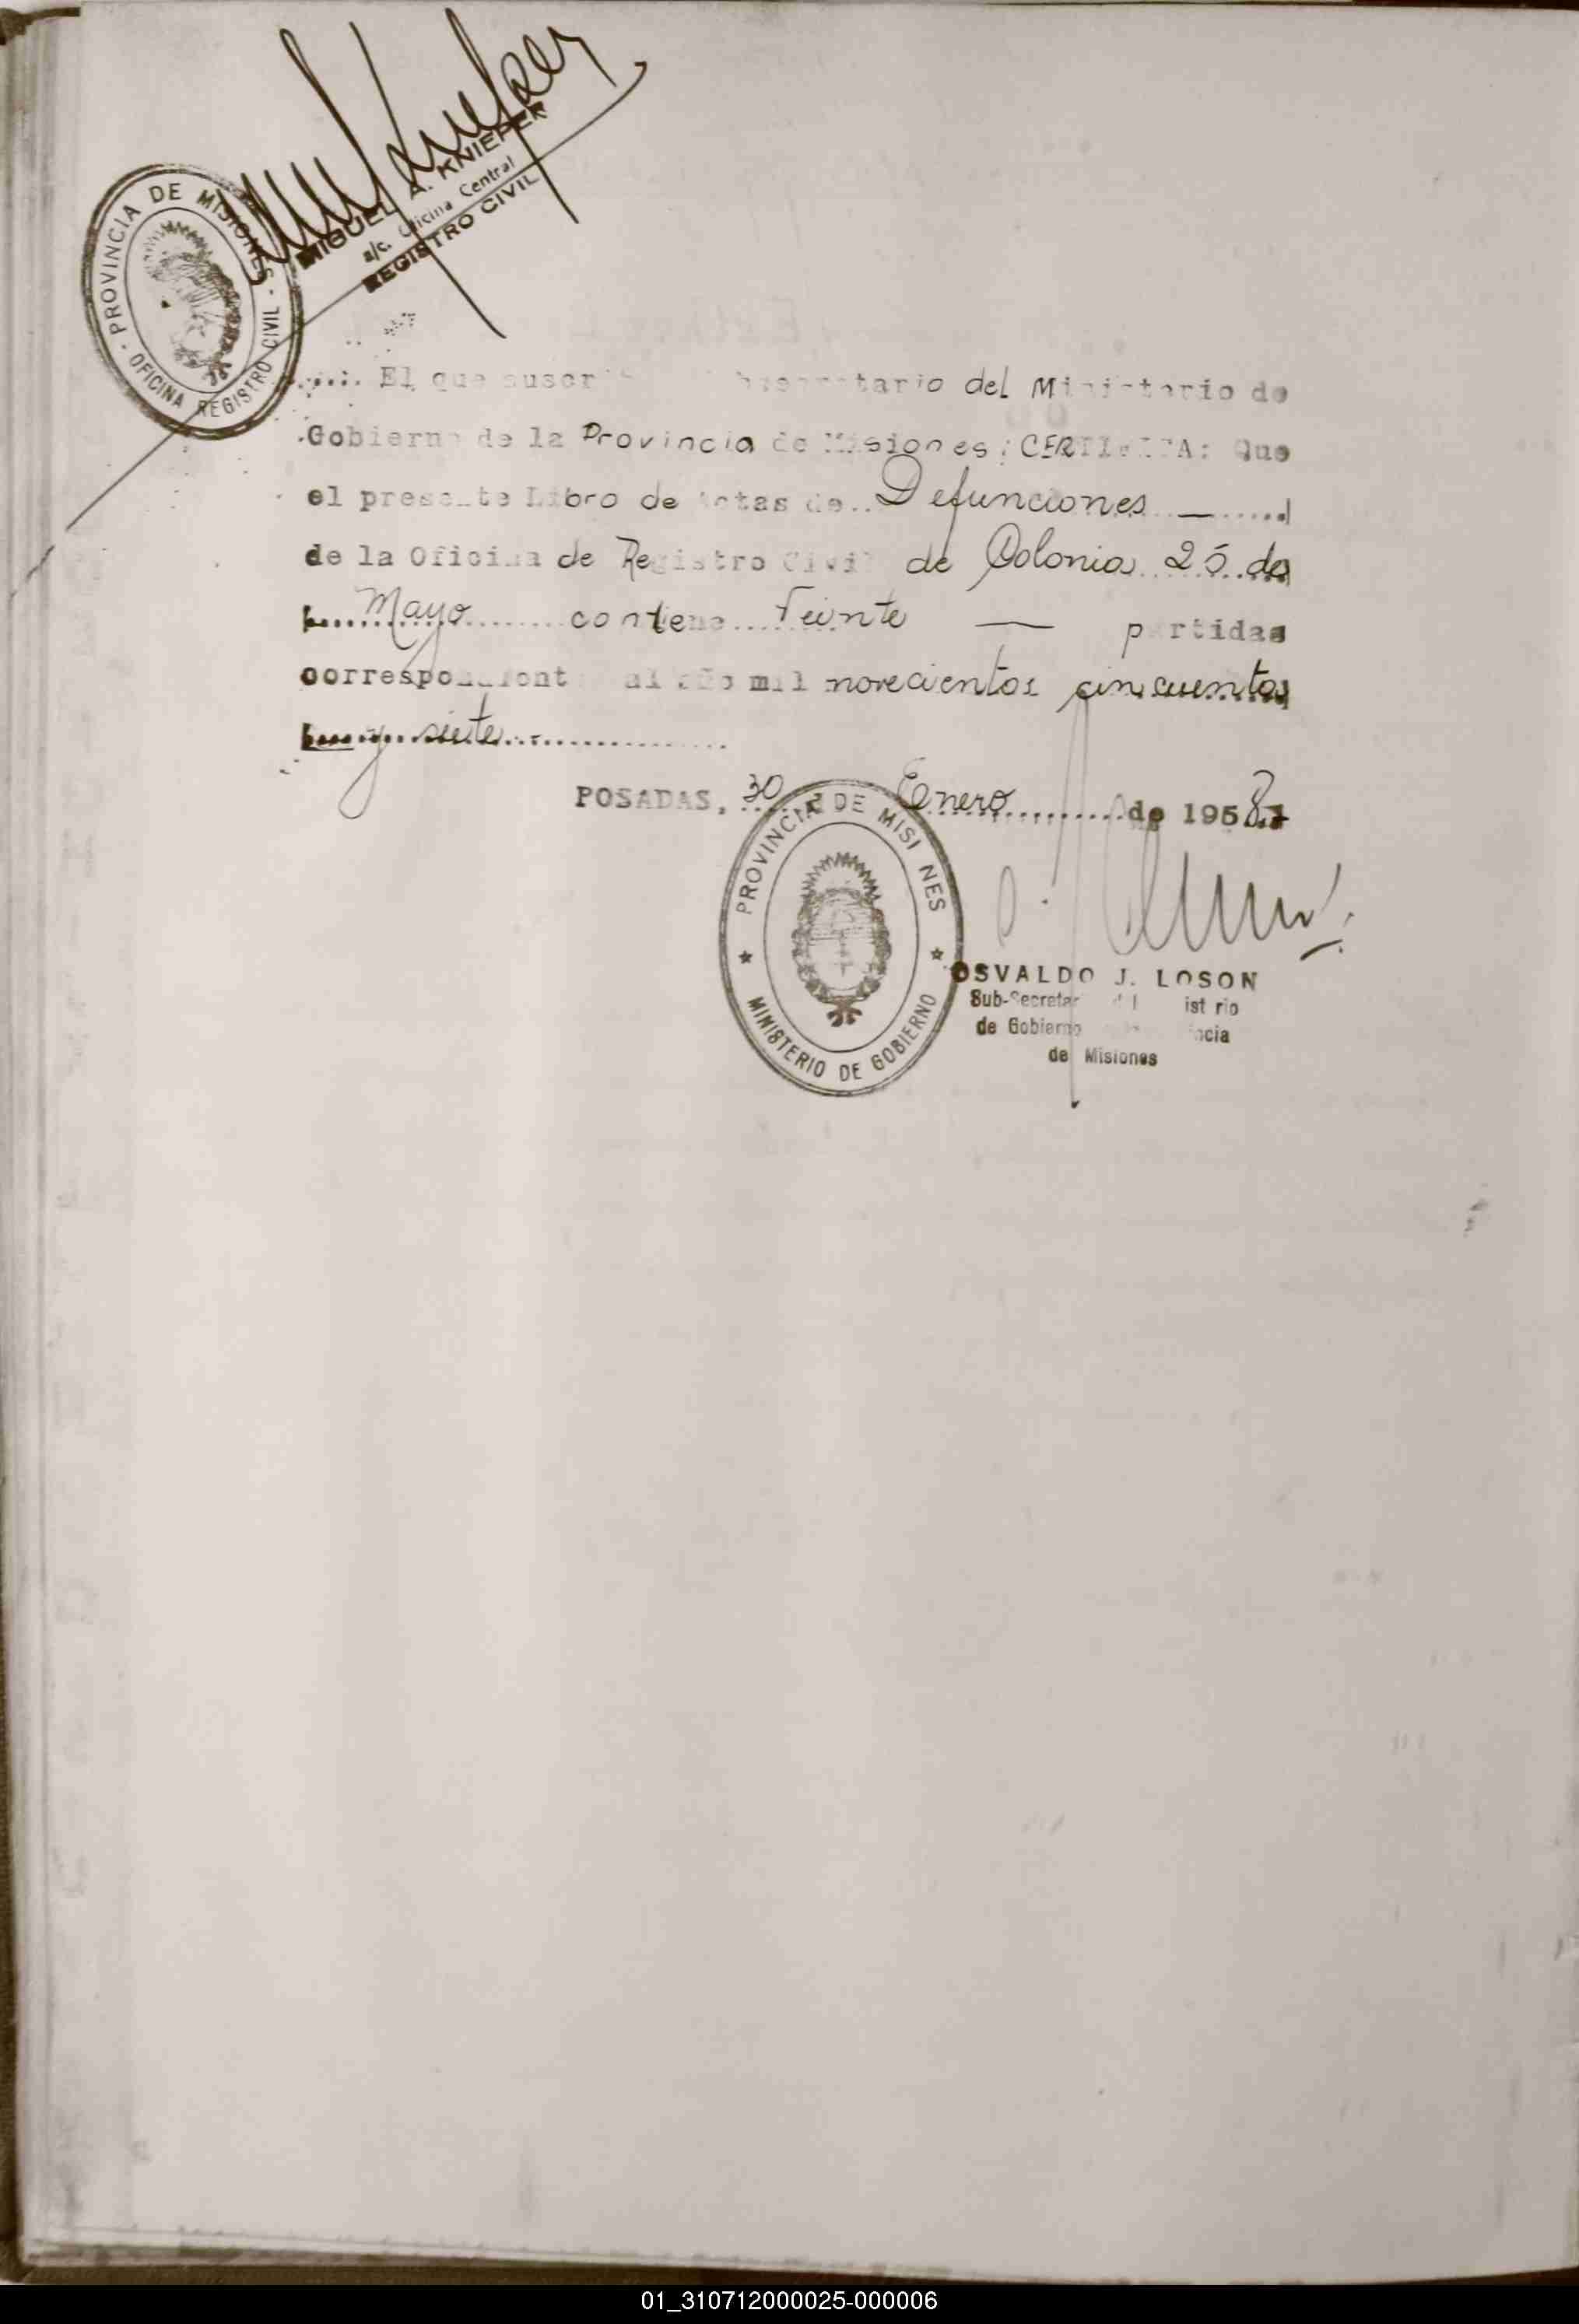 PROVINCIA DE MISIONES
OFICINA REGISTRO CIVIL
MIGUEL A. KNIEPER
a/c. Oficina Central
REGISTRO CIVIL
El que suscribe Subsecretario del Ministerio de
Gobierno de la Provincia de Misiones; CERTIFICA: Que
el presente Libro de Actas de.. Defunciones
de la Oficina de Registro Civil de Colonia 25 de
Mayo contiene Veinte partidas
correspondient al año mil novecientos cincuenta
y siete
POSADAS, 30 de Enero de 1958.-
PROVINCIA DE MISI NES
MINISTERIO DE GOBIERNO
OSVALDO J. LOSON
Sub-Secretar ist rio
de Gobierno ncia
de Misiones
01_310712000025-000006